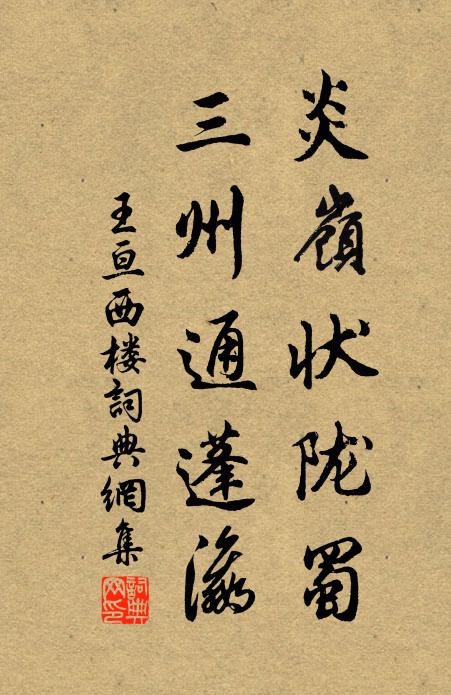 炎嶺状陇蜀
三州通蓬瀛
王亘西楼詞典網集
詞典网印